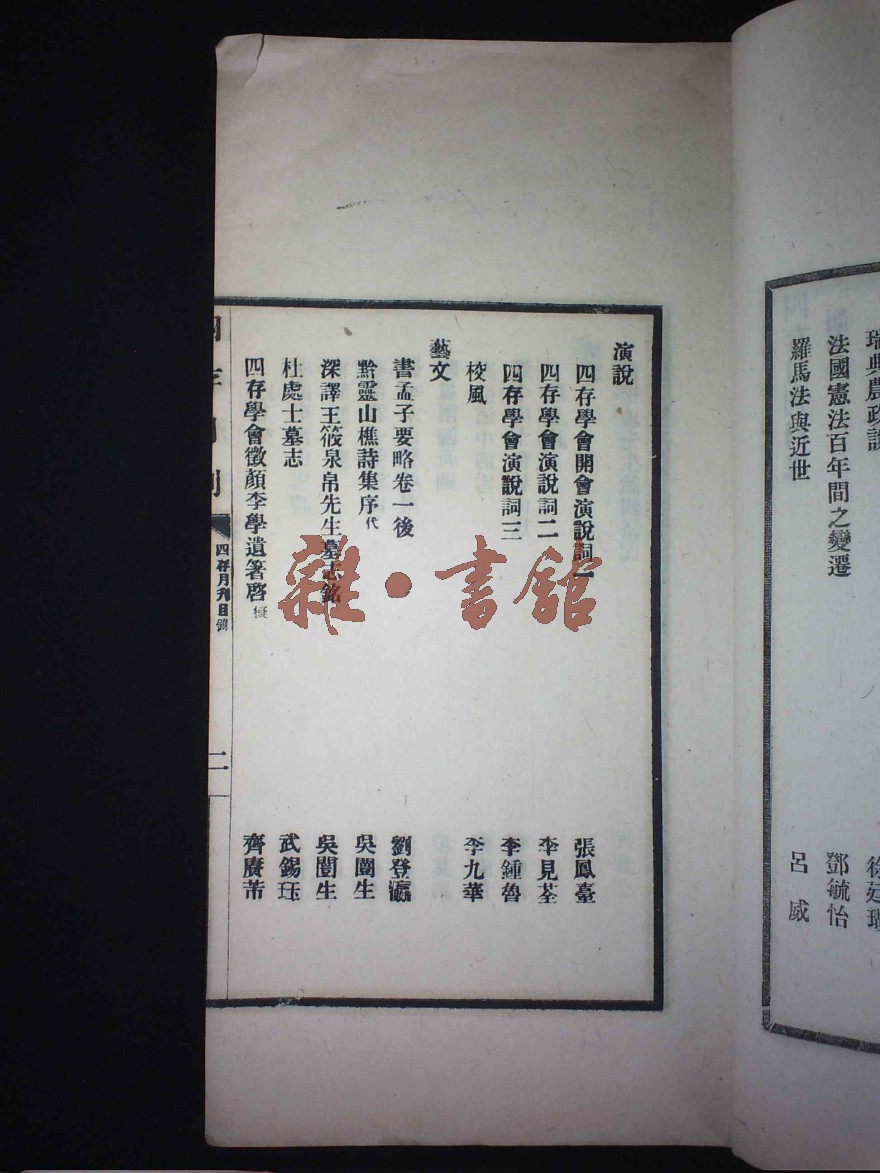 瑞典農政說
法國憲法百年間之變遷 鄧毓怡
羅馬法與近世 呂威
演說
四存學會開會演說詞一 張鳳臺
四存學會演說詞二 李見荃
四存學會演說詞三 李鍾魯
校風 李九華
藝文
書孟子要略卷一後 劉登瀛
黔靈山樵詩集序代 吳闓生
深譯王筱泉帛先生墓志銘 吳闓生
杜處士墓志 武錫玨
四存學會徵顏李學遺箸啓擬 齊賡芾
四存月刊
四存月刊目錄
二
雜·書館